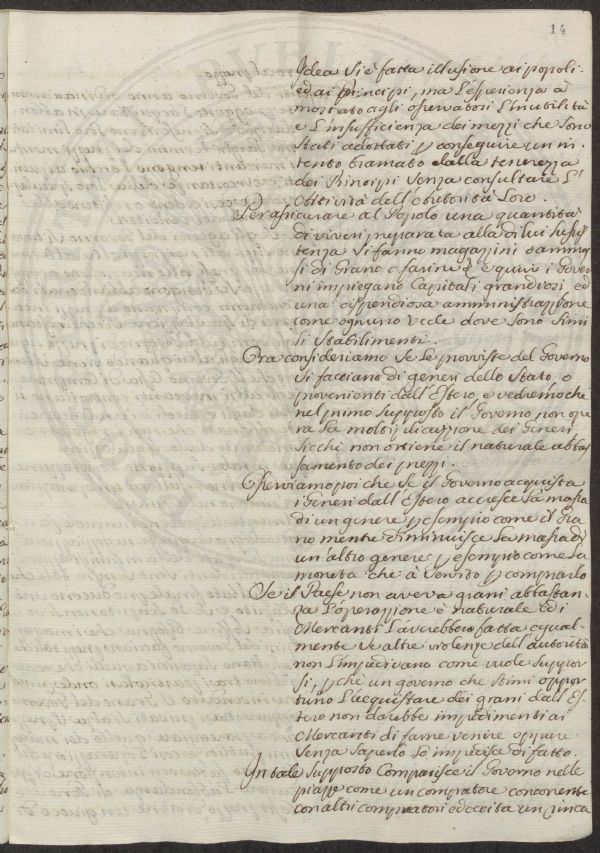 14
Idea si è fatta illusione ai popoli
ed ai Principi, ma l'esperienza à
mostrato agli osservatori l'inutilità
e l'insufficienza dei mezzi che sono
stati adottati p conseguire un in
tento bramato dalla tenerezza
dei Principi senza consultare l'
attività dell'autorità loro.
Per assicurare al Popolo una quantità
di viveri preparata alla di lui sussis
tenza si fanno magazzini o ammas
si di Grano o farine, e quivi i Gover
ni impiegano Capitali grandiosi ed
una dispendiosa amministrazione
come ognuno vede dove sono simi
li stabilimenti.
Ora consideriamo se le provviste del Governo
si facciano di generi dello Stato, o
provenienti dall'Estero, e vedremo che
nel primo supposto il Governo non ope
ra la moltiplicazione dei Generi
sicchè non ottiene il naturale abbas
samento dei prezzi.
Osserviamo poi che se il Governo acquista
i Generi dall'Estero accresce la massa
di un genere p esempio come il Gra
no mentre diminuisce la massa di
un'altro genere p esempio come la
moneta che à servito p comprarlo
Se il Paese non aveva grani abbastan
za l'operazione è naturale ed i
Mercanti l'avrebbero fatta egual-
mente se altre violenze dell'autorità
non l'impedivano come vuole suppor
si, p chè un governo che stimi oppor
tuno l'acquistare dei grani dall'Es
tero non darebbe impedimenti ai
Mercanti di farne venire oppure
senza saperlo lo impedisce di fatto.
In tale supposto Comparisce il Governo nelle
piazze come un compratore concorrente
con altri compratori ed eccita un rinca